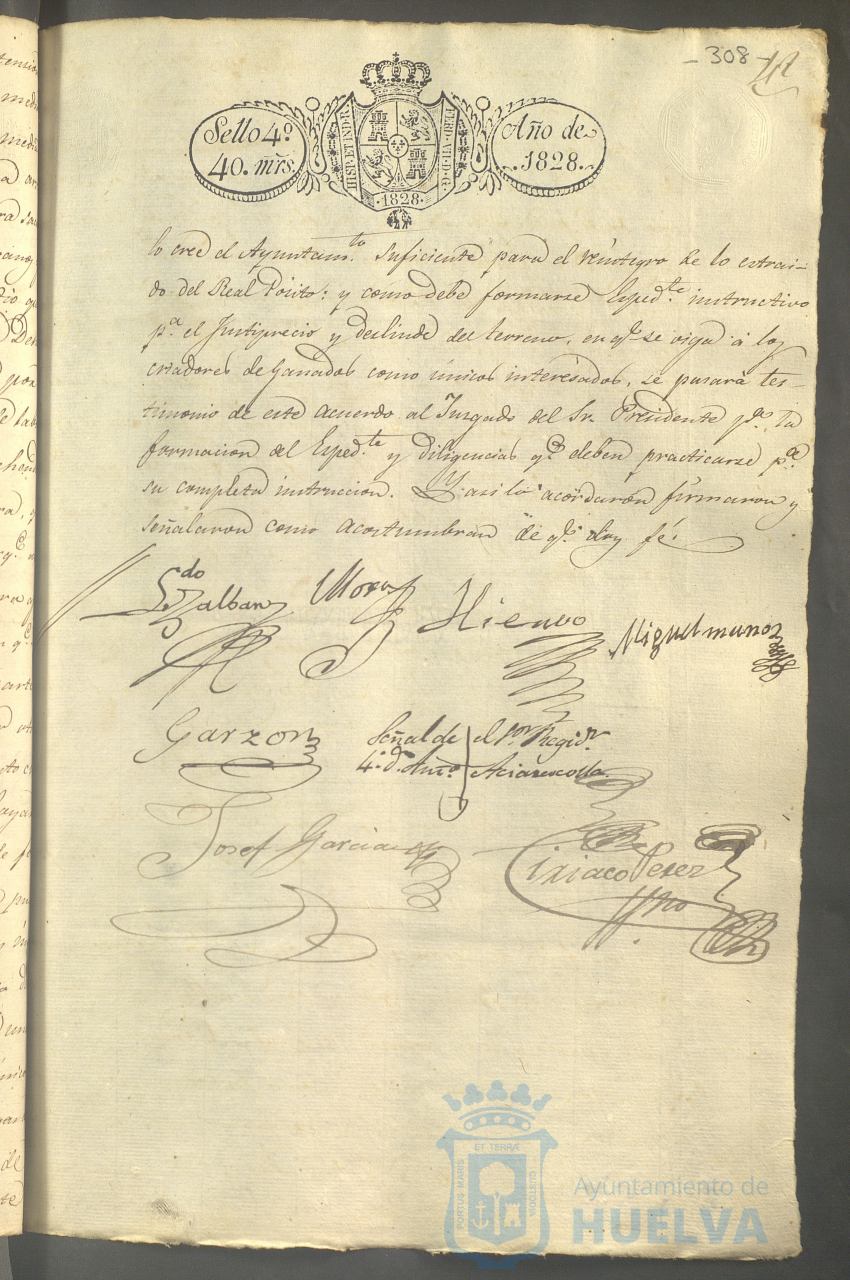 - 308 -
Sello 4º
40. mrs.
HISP. ET IND. R.
FERD. VII. D. G.
·1828·
Año de
1828.
lo cree el Ayuntam.to suficiente para el reintegro de lo extrai-
do del Real Posito: y como debe formarse Exped.te instructivo
p.a el Justiprecio y deslinde del terreno, en q.e se oiga á los
criadores de Ganados como únicos interesados, se pasará tes-
timonio de este acuerdo al Juzgado del Sr. Presidente p.a la
formacion del Exped.te y diligencias q.e deben practicarse p.a
su completa instruccion. Y asi lo acordaron firmaron y
señalaron como acostumbran de q.e doy fé
L.do Zalban Mora Hierro Miguel Munoz
Garzon Señal de el Regid.r
4.º D. Ant.º
Josef Garcia
Ciriaco Perez
ET TERRÆ
PORTUS MARIS
CUSTODIA
Ayuntamiento de
HUELVA